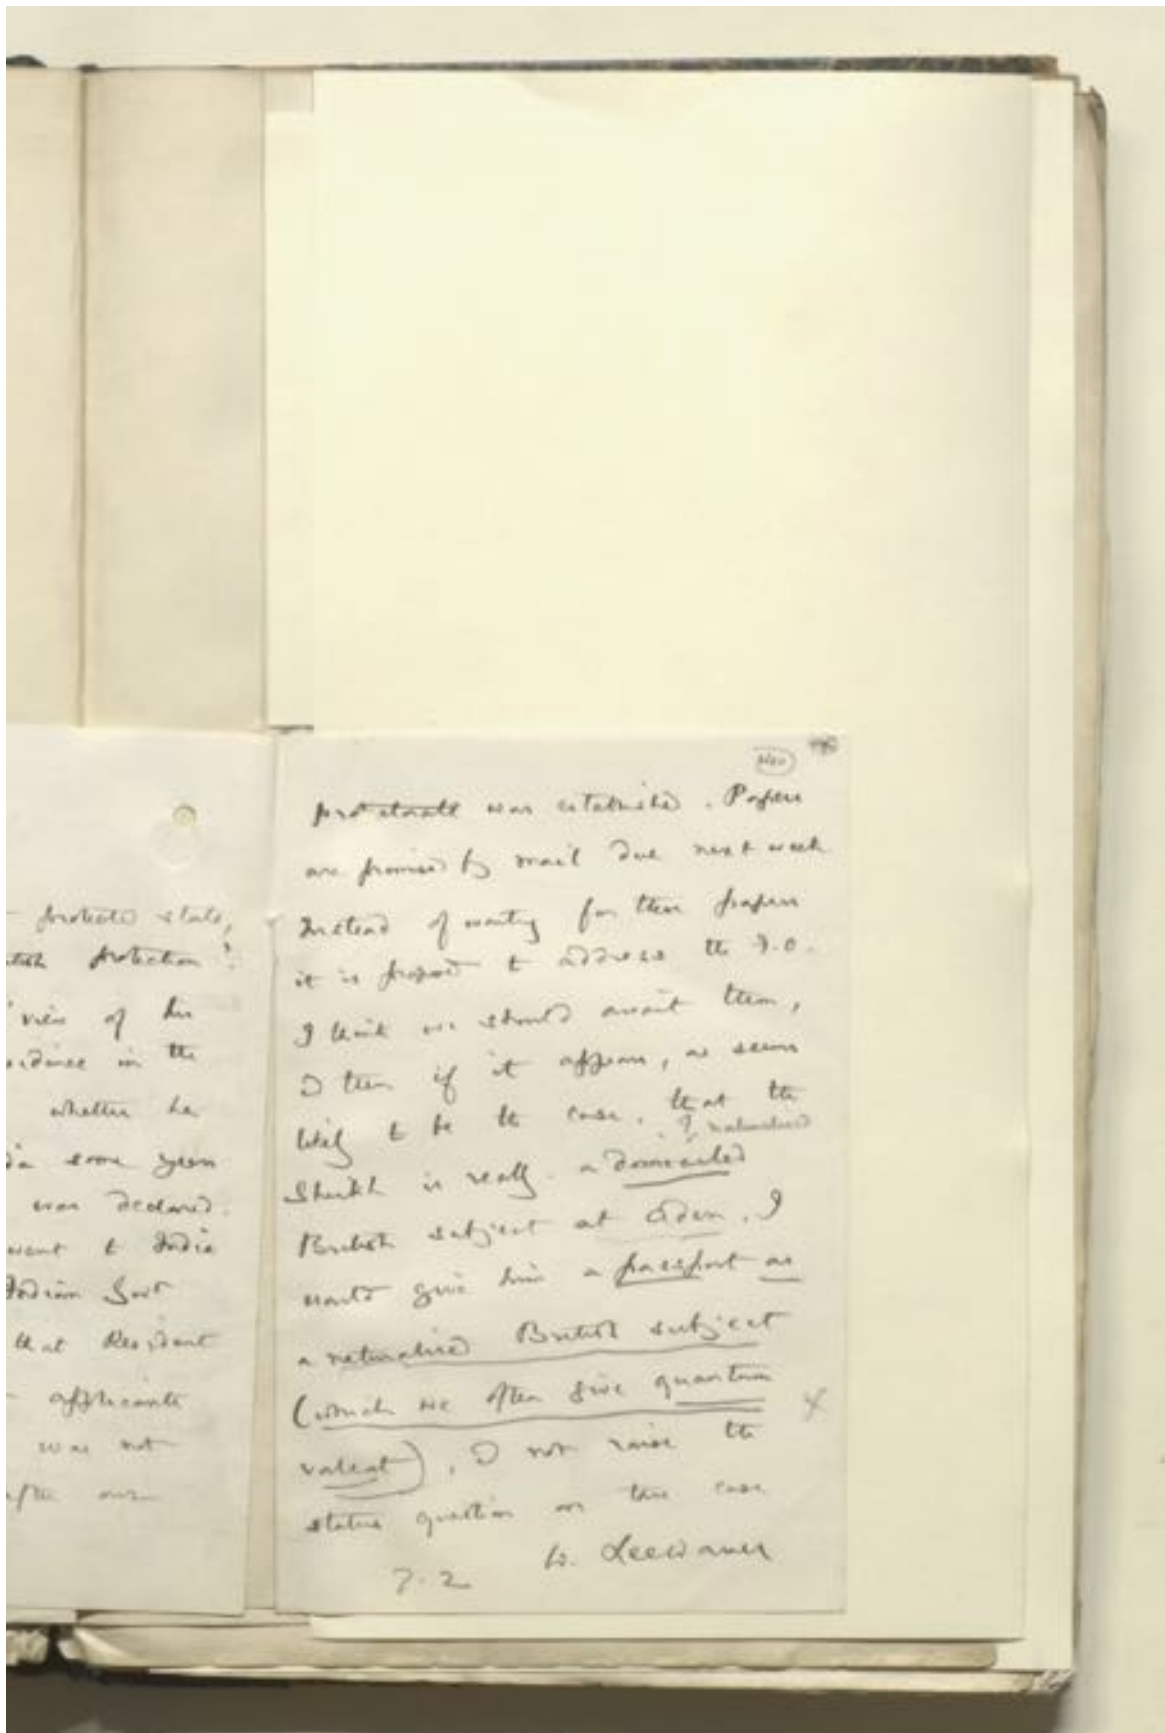 protected state,
protection?
view of his
residence in the
whether he
some years
was declared.
went to India
Indian Govt
that Resident
applicants
was not
after our
protectorate was established. Papers
are promised by mail due next week
Instead of waiting for these papers
it is proposed to address the F.O.
I think we should await them,
& then if it appears, as seems
likely to be the case, that the
? naturalised
Sheikh is really a domiciled
British subject at Aden. I
would give him a passport as
a naturalised British subject
(which we often give quantum
valeat), & not raise the
status question on this case
W. Leewarner
7.2